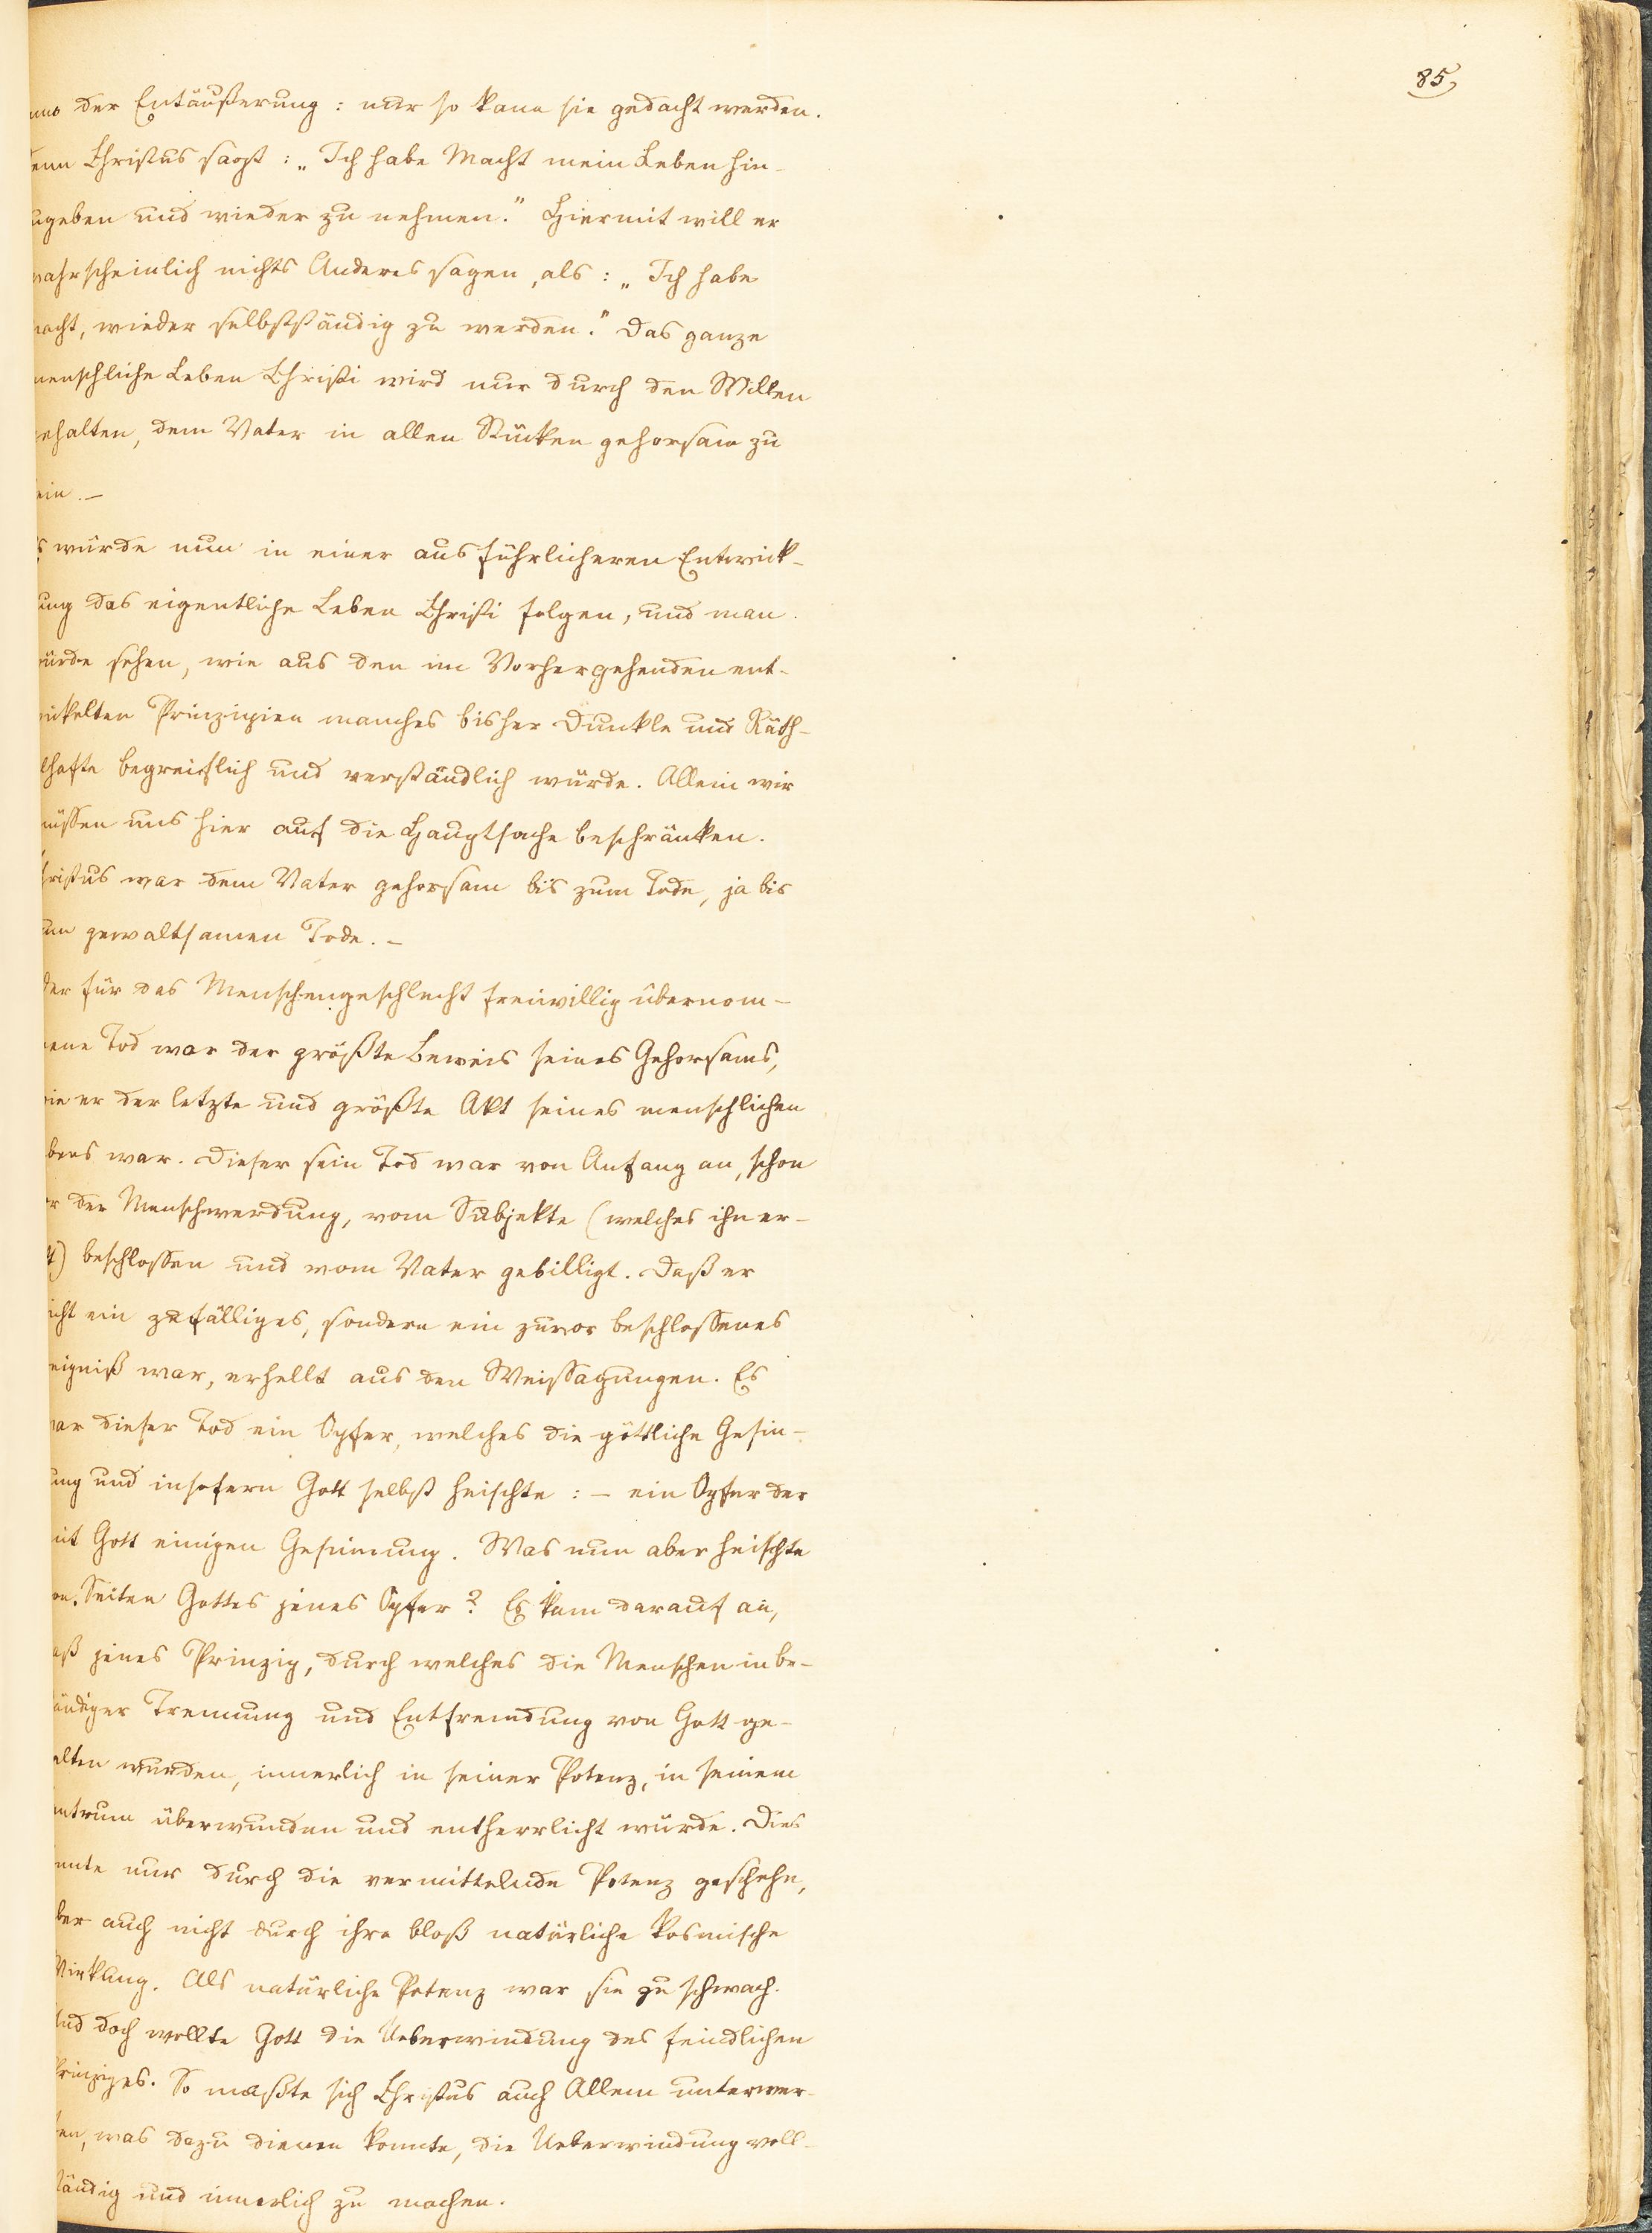 85,
der Entäußerung: nur so kann sie gedacht werden.
enn Christus sagt: „Ich habe Macht mein Leben hin-
ugeben und wieder zu nehmen." Hiermit will er
wahrscheinlich nichts Anderes sagen, als: „Ich habe
acht, wieder selbstständig zu werden." Das ganze
menschliche Leben Christi wird nur durch den Willen
ehalten, dem Vater in allen Stücken gehorsam zu
ein. —
s würde nun in einer ausführlicheren Entwick-
ung das eigentliche Leben Christi folgen, und man
ürde sehen, wie aus den im Vorhergehenden ent-
ickelten Prinzipien manches bisher Dunkle und Räth-
lhafte begreiflich und verständlich würde. Allein wir
üssen uns hier auf die Hauptsache beschränken.
hristus war dem Vater gehorsam bis zum Tode, ja bis
um gewaltsamen Tode. —
der für das Menschengeschlecht freiwillig übernom-
ene Tod war der größte Beweis seines Gehorsams,
ie er der letzte und größte Akt seines menschlichen
bens war. Dieser sein Tod war von Anfang an, schon
r der Menschwerdung, vom Subjekte (welches ihn er-
tt) beschlossen und vom Vater gebilligt. Daß er
icht ein zufälliges, sondern ein zuvor beschlossenes
eigniß war, erhellt aus den Weissagungen. Es
ar dieser Tod ein Opfer, welches die göttliche Gesin-
ung und insofern Gott selbst heischte: — ein Opfer der
it Gott einigen Gesinnung. Was nun aber heischte
on Seiten Gottes jenes Opfer? Es kam darauf an,
aß jenes Prinzip, durch welches die Menschen in be-
ändiger Trennung und Entfremdung von Gott ge-
alten wurden, innerlich in seiner Potenz, in seinem
ntrum überwunden und entherrlicht würde. Dies
nnte nur durch die vermittelnde Potenz geschehn,
ber auch nicht durch ihre bloß natürliche kosmische
Wirkung. Als natürliche Potenz war sie zu schwach.
Und doch wollte Gott die Ueberwindung des feindlichen
Prinzipes. So mußte sich Christus auch Allem unterwer-
fen, was dazu dienen konnte, die Ueberwindung voll-
ständig und innerlich zu machen.